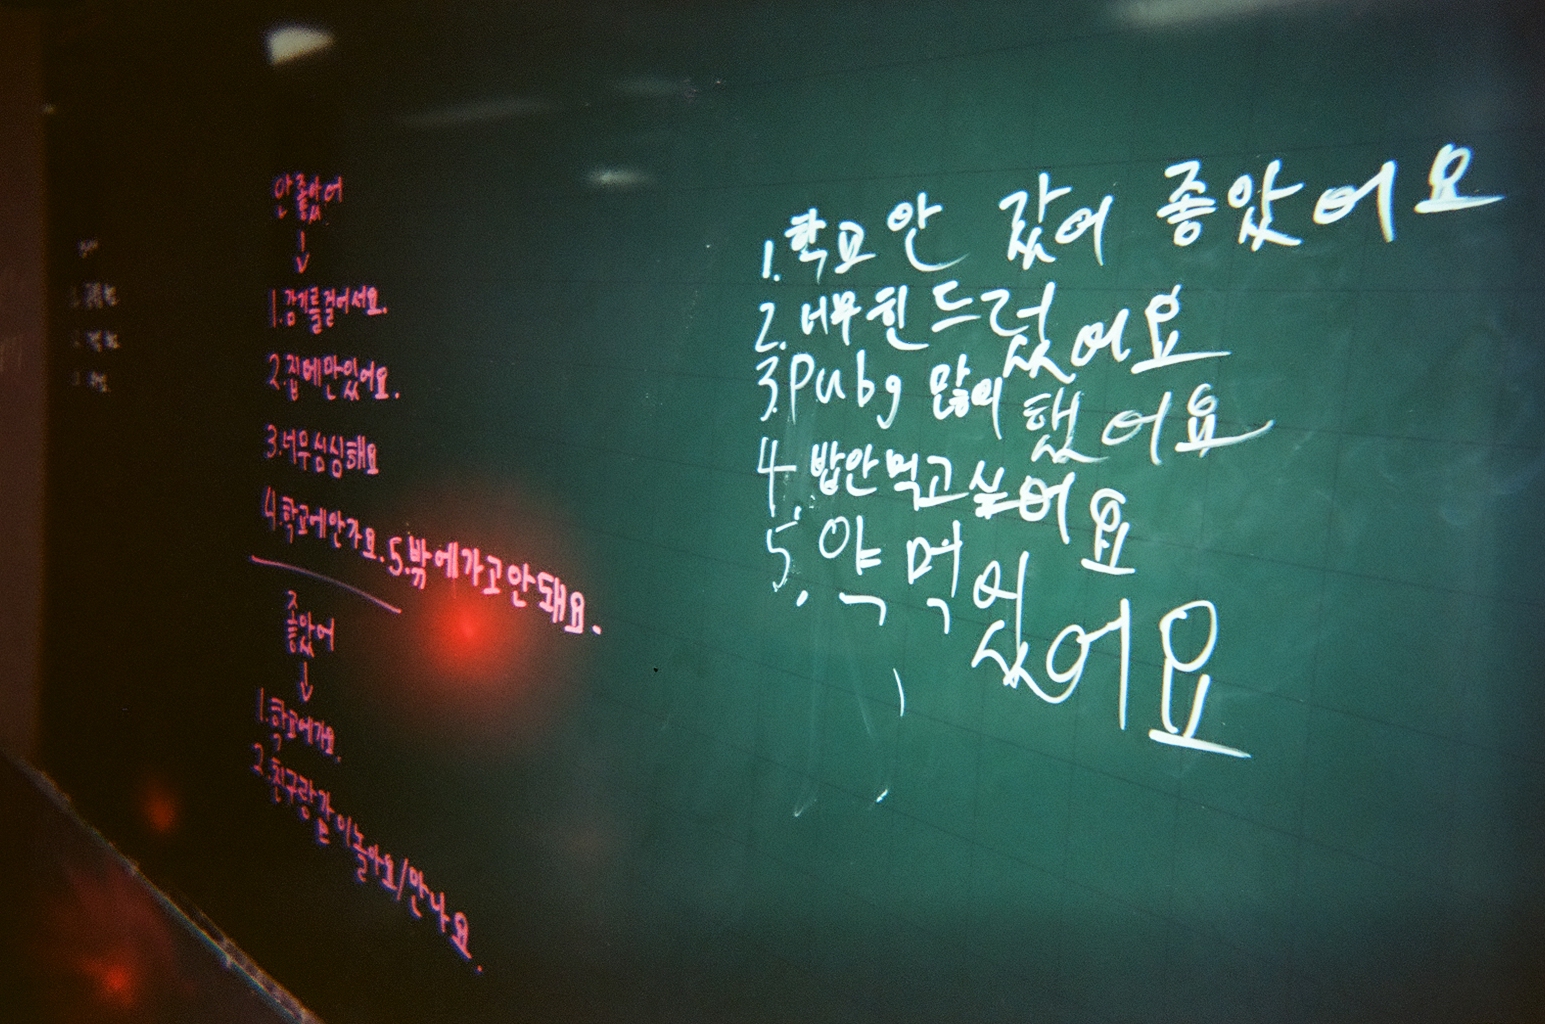 안 좋았어
↓
1. 감기를 걸어서요.
2. 집에만 있어요.
3. 너무 심심해요
4. 학교에 안 가요. 5. 밖에 가고 안 돼요.
좋았어
↓
1. 학교에 가요.
2. 친구랑 같이 놀아요/만나요.
1. 학교 안 갔어 좋았어요
2. 너무 힌드렀어요
3. Pubg 많의 했어요
4. 밥 안 먹고 싶어요
5. 약 먹었어요